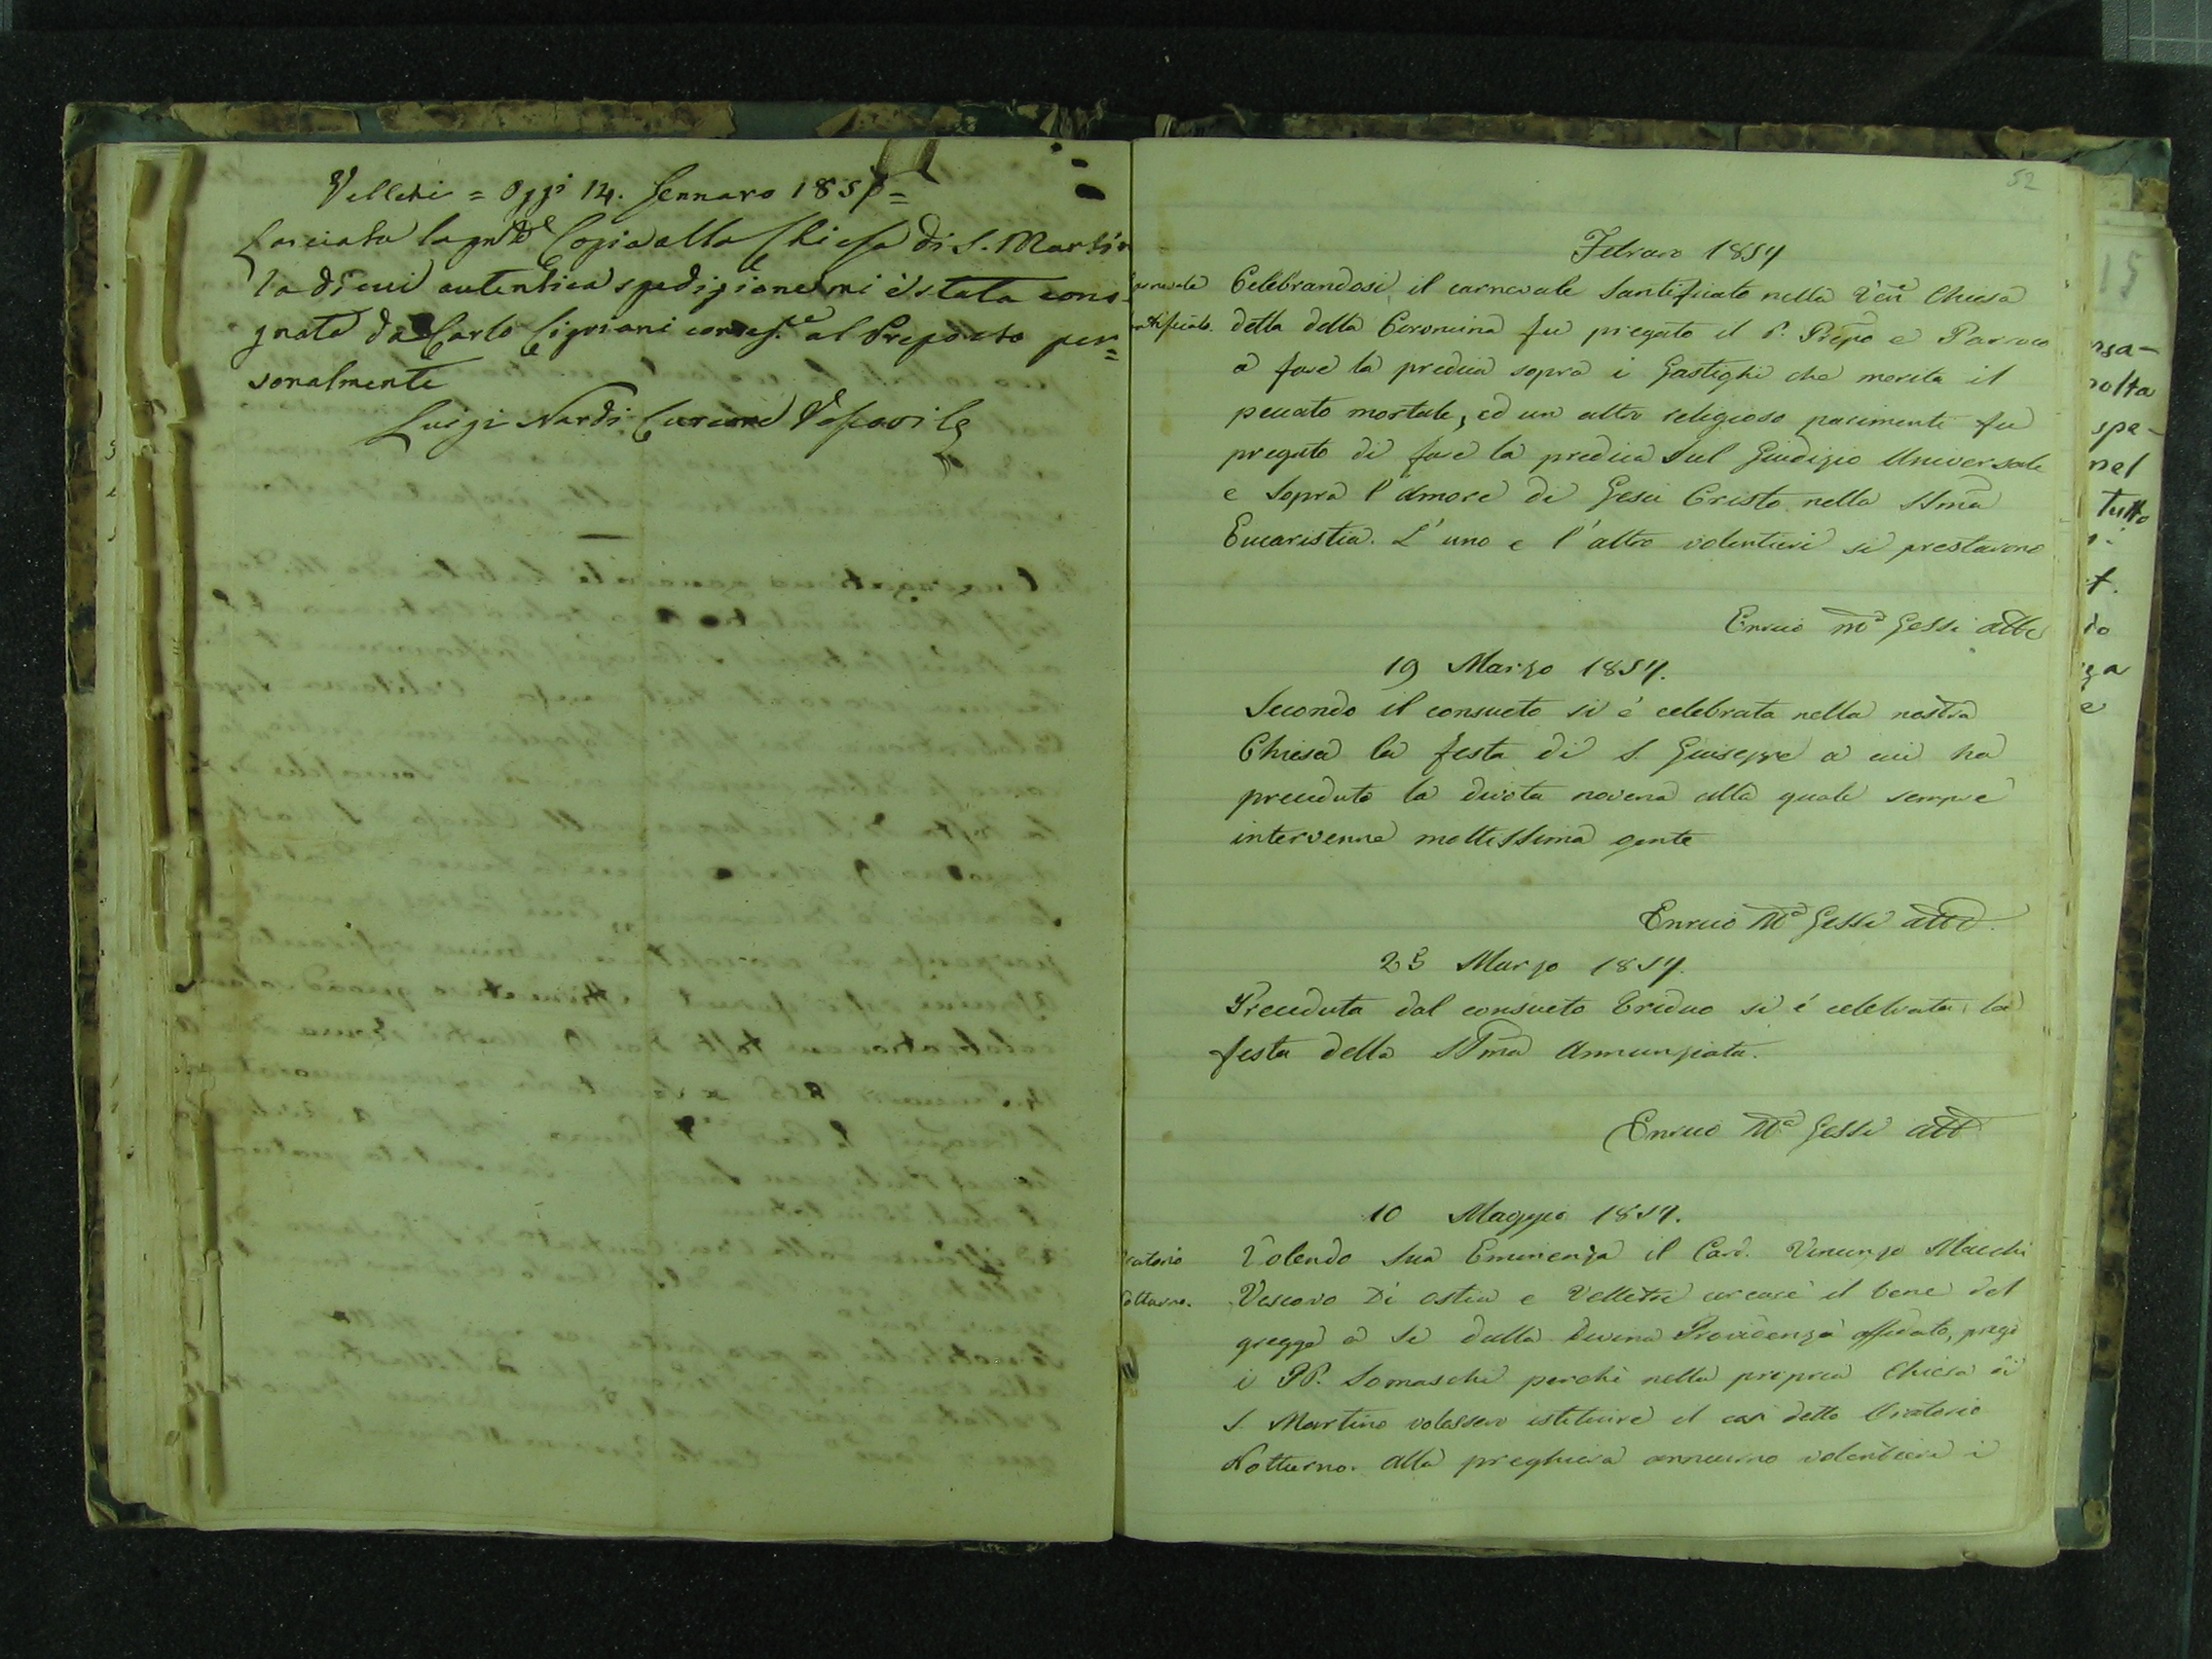 Velletri = Oggi 14. Gennaro 185
Lasciata la pnte Copia alla Chiesa di S. Martin
la di cui autentica spedizione mi è stata cons-
gnata da Carlo Cipriani al Preposto per=
sonalmente
Luigi Nardi Cursore Vescovile
52
Febraro 1854
Carnevale
Santificato.
Celebrandosi il carnevale Santificato nella Ven Chiesa
detta della Coroncina fu pregato il P. Prepo e Parroco
a fare la predica sopra i Gastighi che merita il
peccato mortale, ed un altro religioso parimenti fu
pregato di fare la predica sul Giudizio Universale
e sopra l'Amore di Gesù Cristo nella SSma
Eucaristia. L'uno e l'altro volentieri si prestarono
Enrico Ma Gessi atto
19 Marzo 1854.
Secondo il consueto si è celebrata nella nostra
Chiesa la festa di S. Giuseppe a cui ha
preceduto la divota novena alla quale sempre
intervenne moltissima gente
Enrico Ma Gessi atto
25 Marzo 1854.
Preceduta dal consueto triduo si è celebrata la
festa della SSma Annunziata.
Enrico Ma Gessi att
10 Maggio 1854.
Oratorio
Notturno.
Volendo Sua Eminenza il Card. Vincenzo Macchi
Vescovo Di Ostia e Velletri cercare il bene del
gregge a se dalla Divina Providenza affidato, pregò
i PP. Somaschi perchè nella propria Chiesa di
S. Martino volessero istituire il così detto Oratorio
Notturno. Alla preghiera annuirono volentieri i
15
nsa-
nolta
spe-
nel
tutto